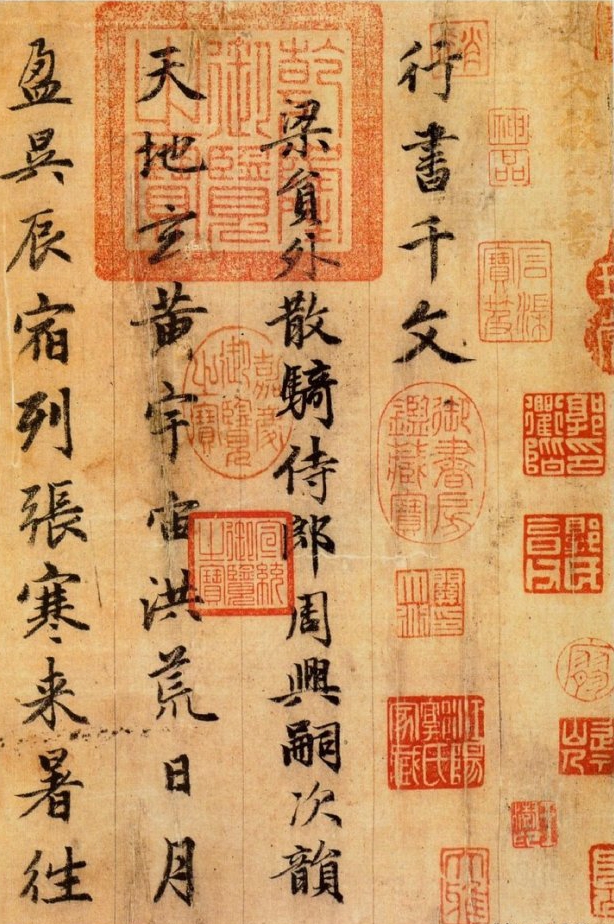 神品
石渠寶笈
行書千文
御書房鑑藏寶
梁貟外散騎侍郎周興嗣次韻
乾隆御覽之寶
嘉慶御覽之寶
宣統御覽之寶
天地玄黃宇宙洪荒日月
盈昃辰宿列張寒来暑往